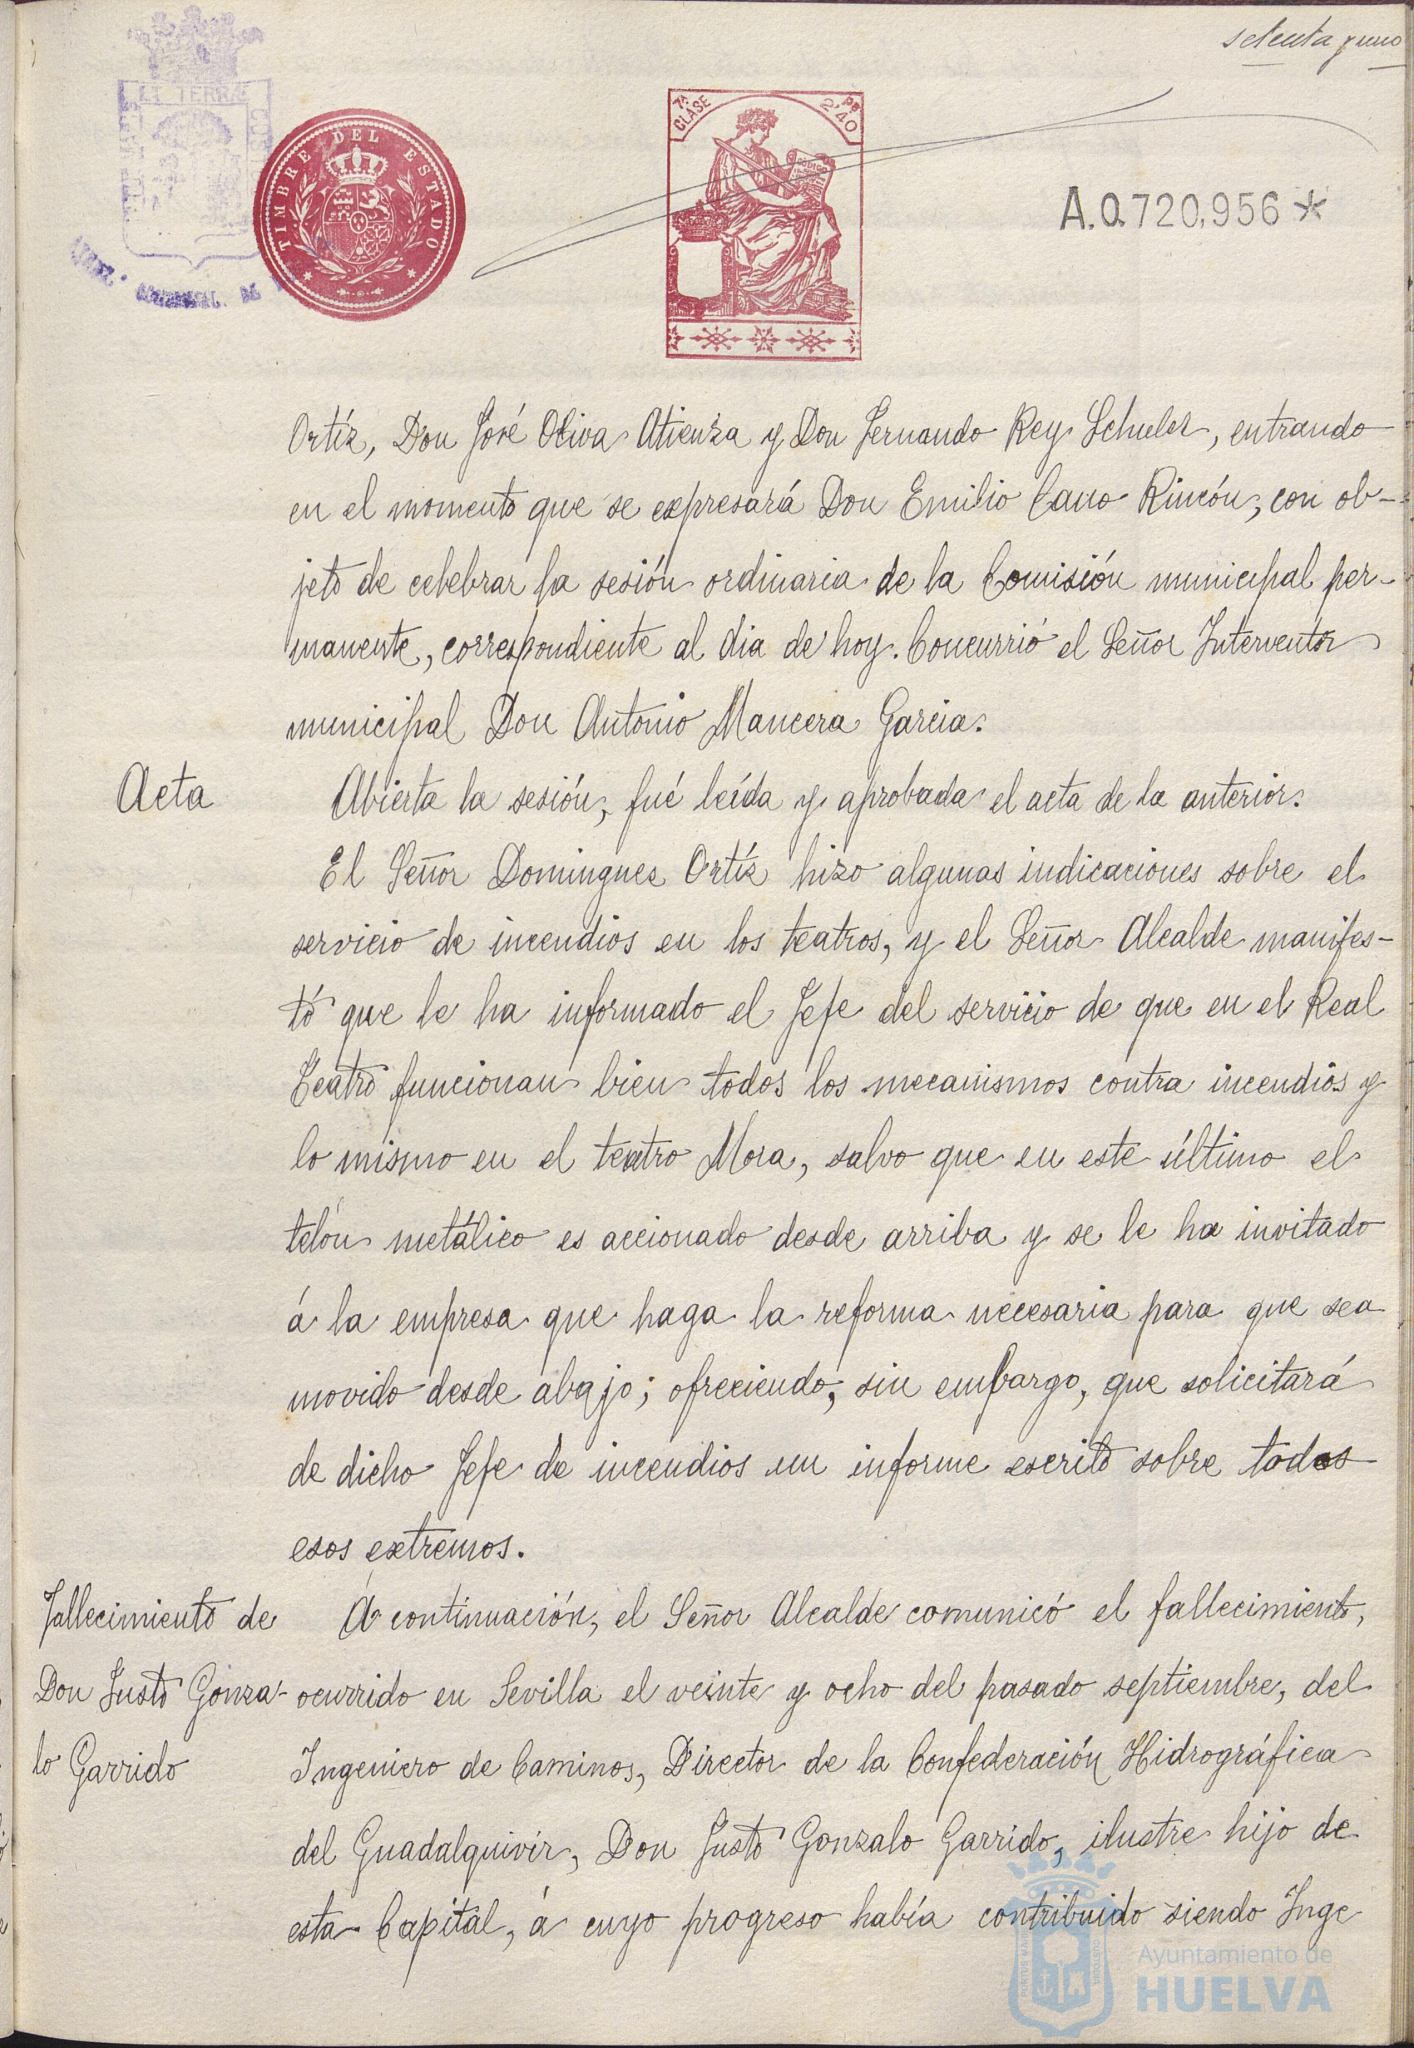 setenta y uno
ET TERRÆ
TIMBRE DEL ESTADO
7ª CLASE
2'40
CODIGO
A.0.720,956*
Ortíz, Don José Oliva Atienza y Don Fernando Rey Schuler, entrando
en el momento que se expresará Don Emilio Cano Rincón, con ob-
jeto de celebrar la sesión ordinaria de la Comisión municipal per-
manente, correspondiente al dia de hoy. Concurrió el Señor Interventor
municipal Don Antonio Mancera Garcia.
Acta
Abierta la sesión, fué leída y aprobada el acta de la anterior.
El Señor Dominguez Ortíz hizo algunas indicaciones sobre el
servicio de incendios en los teatros, y el Señor Alcalde manifes-
tó que le ha informado el Jefe del servicio de que en el Real
Teatro funcionan bien todos los mecanismos contra incendios y
lo mismo en el teatro Mora, salvo que en este último el
telón metálico es accionado desde arriba y se le ha invitado
á la empresa que haga la reforma necesaria para que sea
movido desde abajo; ofreciendo, sin embargo, que solicitará
de dicho Jefe de incendios un informe escrito sobre todos
esos extremos.
Fallecimiento de
Don Justo Gonza-
lo Garrido
A continuación, el Señor Alcalde comunicó el fallecimiento,
ocurrido en Sevilla el veinte y ocho del pasado septiembre, del
Ingeniero de Caminos, Director de la Confederación Hidrográfica
del Guadalquivir, Don Justo Gonzalo Garrido, ilustre hijo de
esta Capital, á cuyo progreso había contribuido siendo Inge
Ayuntamiento de
HUELVA